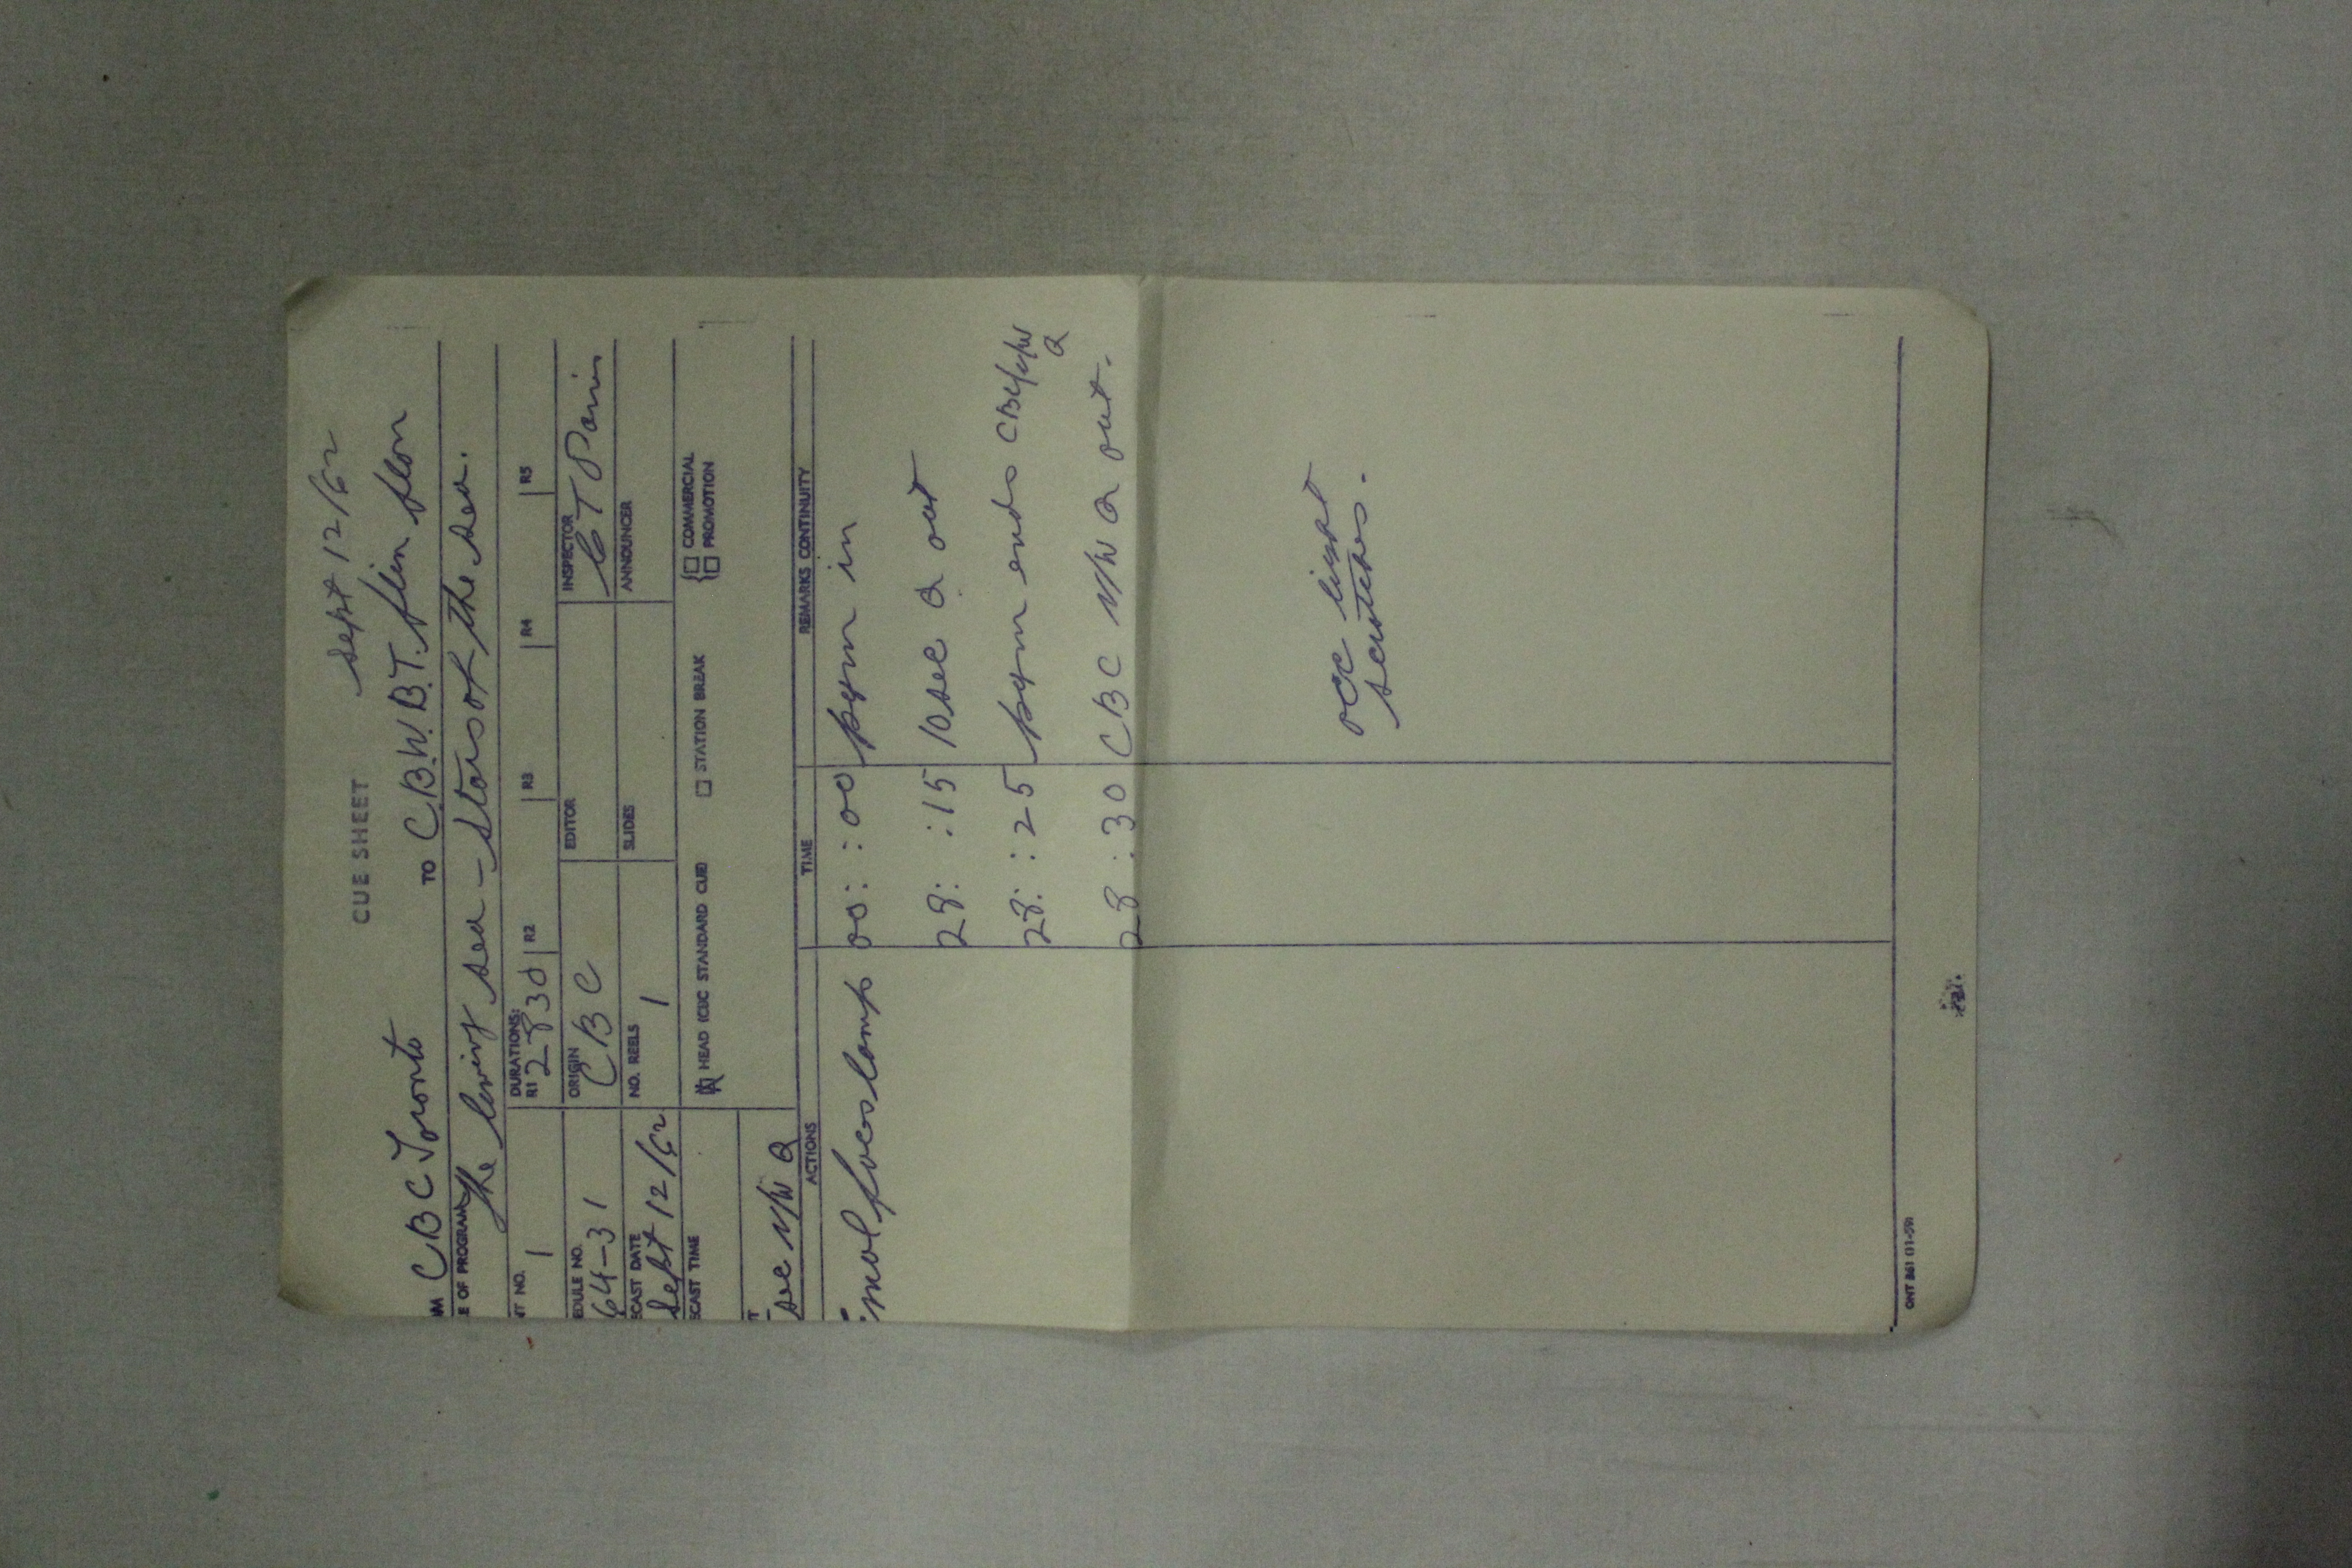 CUE SHEET sept 12/62
M CBC Toronto TO C.B.W.B.T. flin flon
E OF PROGRAM The living sea - stars of the sea.
NT NO. 1
DURATIONS:
R1 28 30 R2 R3 R4 R5
EDULE NO. 64-31
ORIGIN CBC
EDITOR
INSPECTOR
ECAST DATE Sept 12/62
NO. REELS 1
SLIDES
ANNOUNCER
ECAST TIME
HEAD (CBC STANDARD CUE)
STATION BREAK
COMMERCIAL
PROMOTION
T
sec N/W Q
ACTIONS TIME REMARKS CONTINUITY
00::00 pgm in
28::15 10sec Q out
28::25 pgm ends CBC N/W
Q
28:30 CBC N/W Q out.
occ light
scratches.
ONT 861 (11-59)